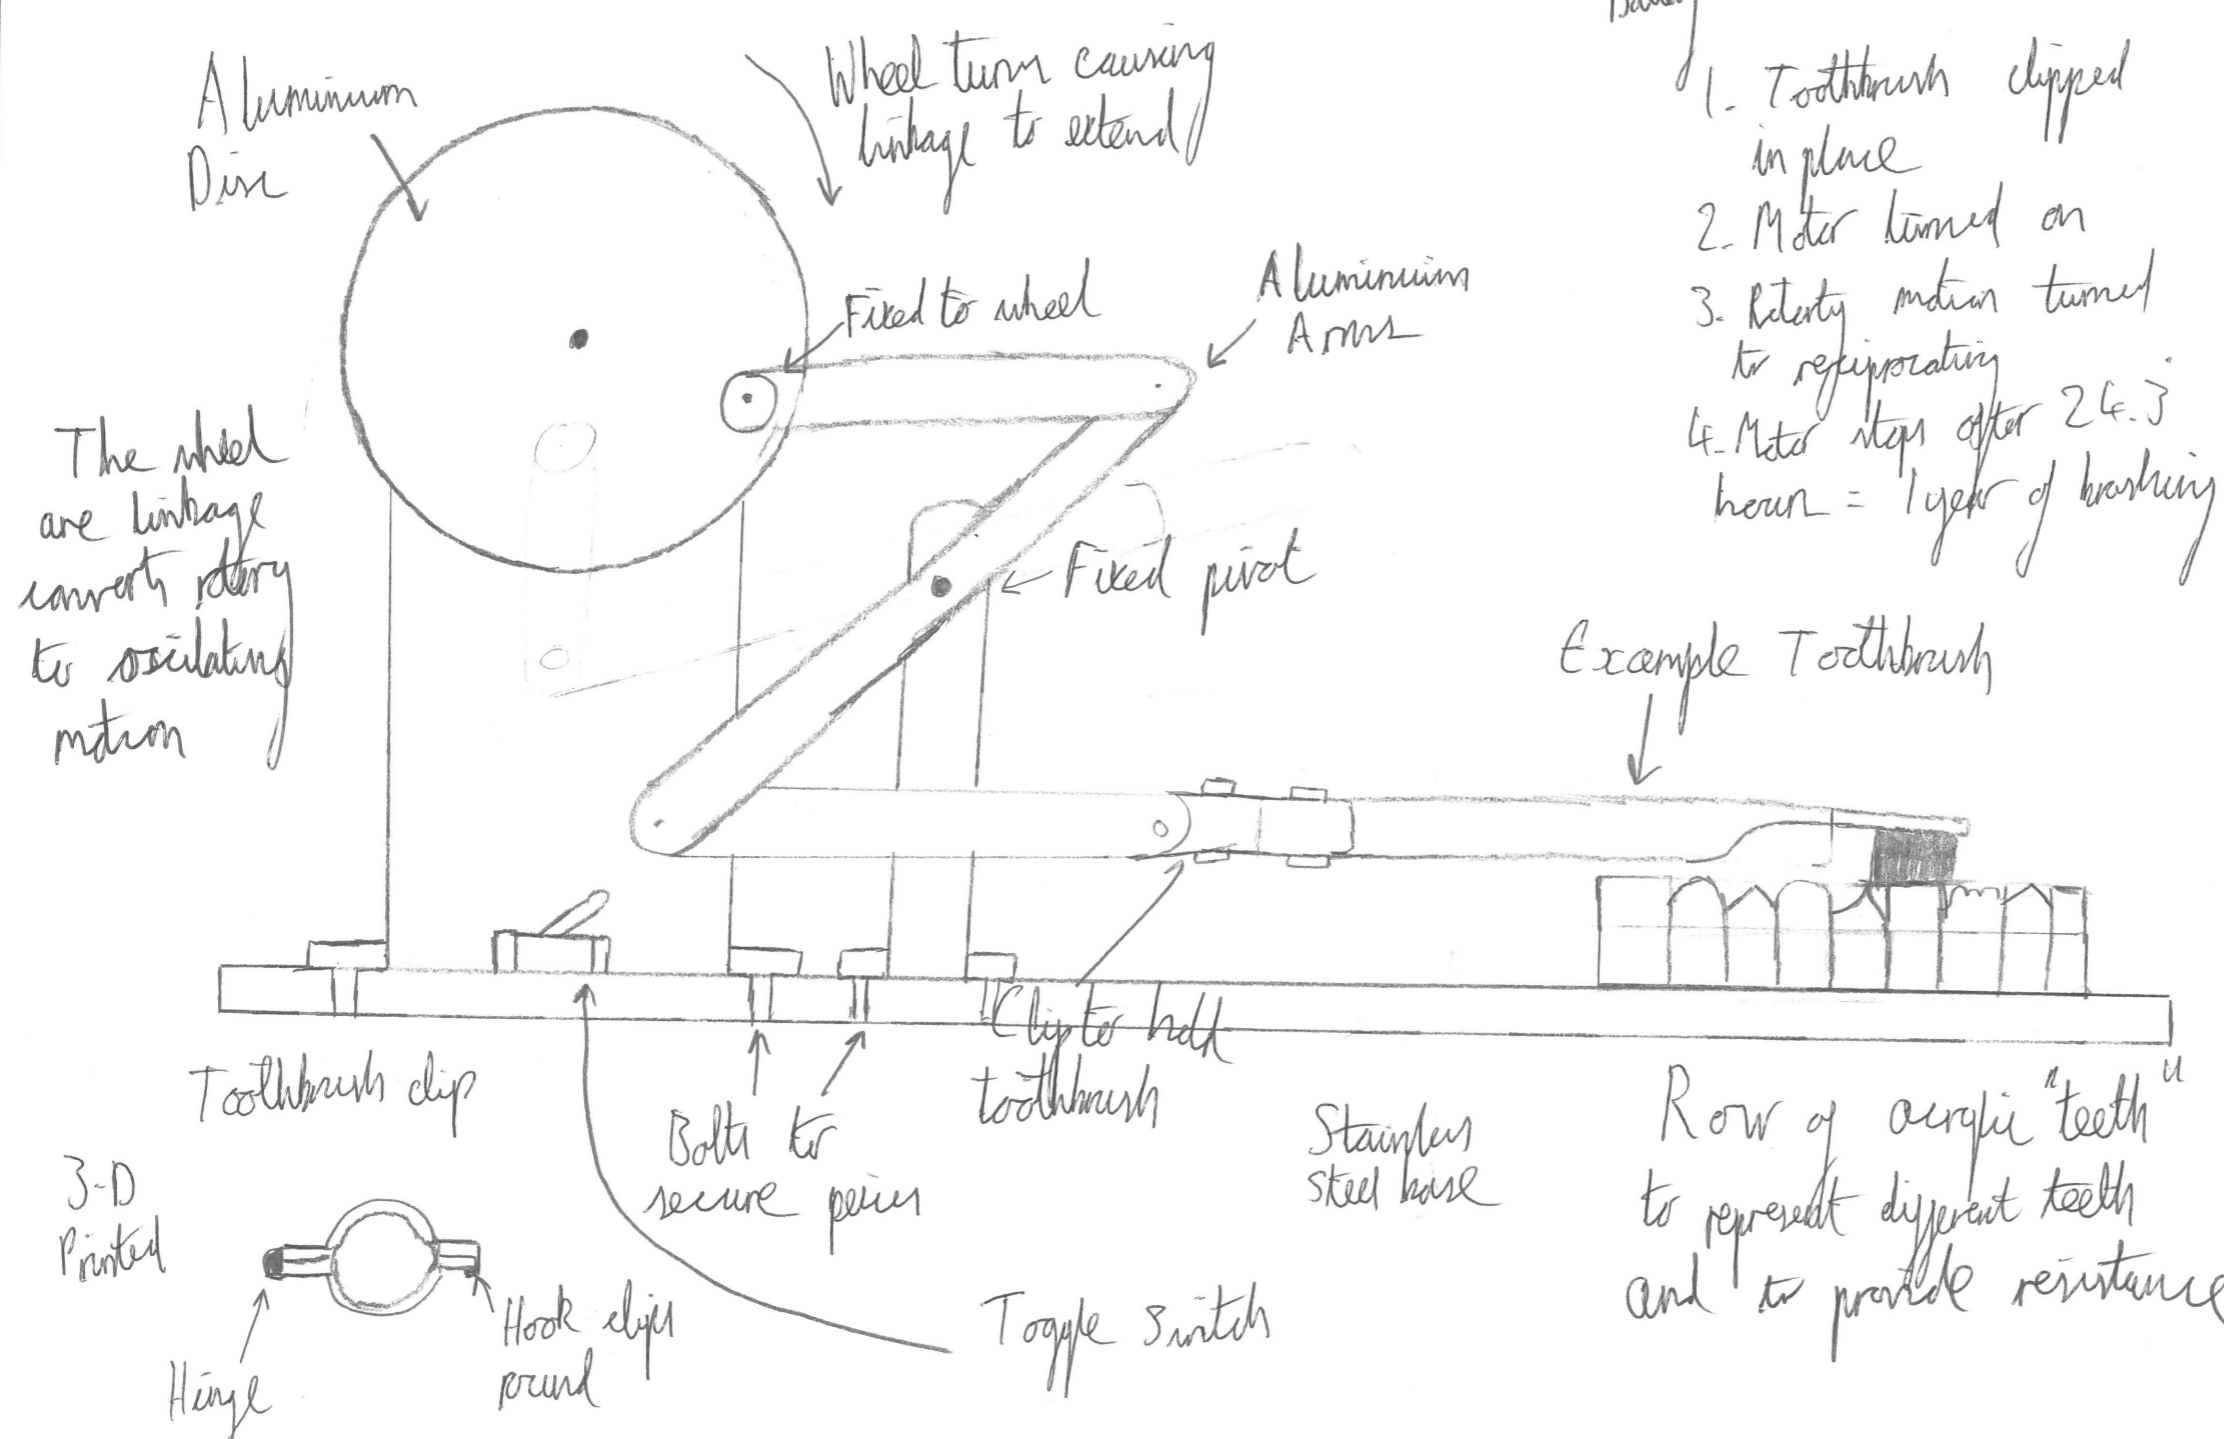 Aluminium
Disc
Wheel turns causing
linkage to extend
1. Toothbrush clipped
in place
2. Motor turned on
3. Rotarty motion turned
to reciprocating
4. Motor stops after 24.3
hours = 1 year of brushing
Fixed to wheel
Aluminium
Arms
The wheel
are linkage
converts rotary
to oscilating
motion
Fixed pivot
Example Toothbrush
Clip to hold
toothbrush
Toothbrush clip
Bolts to
secure peices
Stainless
steel base
Row of acrylic "teeth"
to represent different teeth
and to provide resistance
3-D
Printed
Hinge
Hook clips
round
Toggle Switch